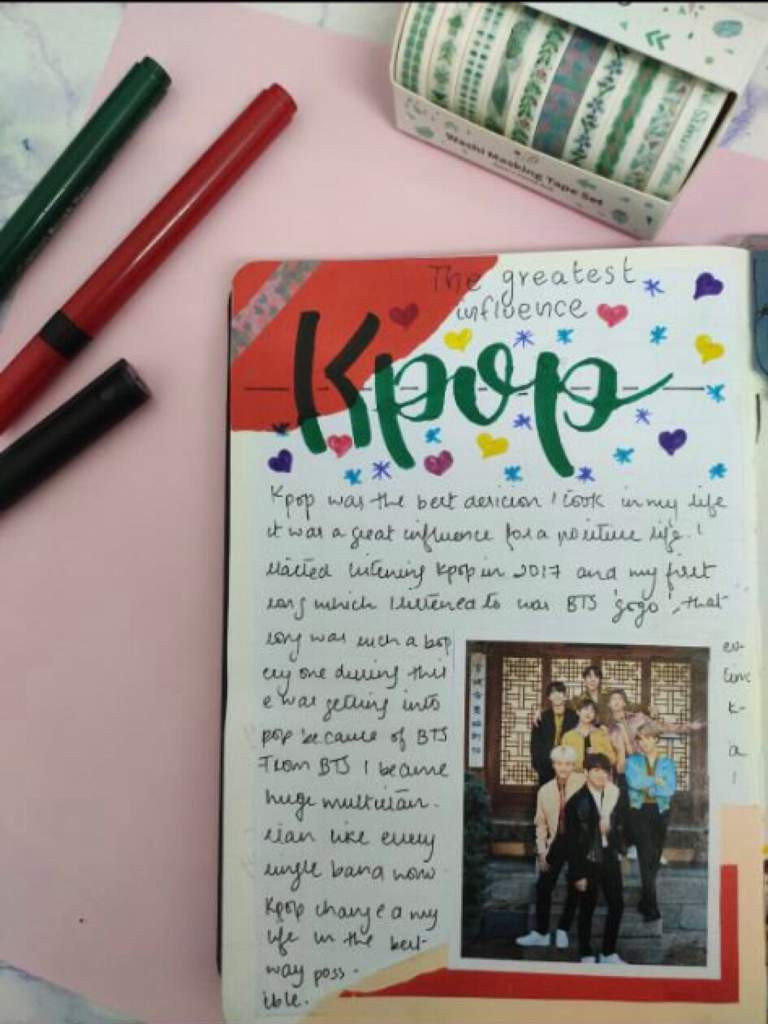 Washi Masking Tape Set
The greatest
influence
Kpop
Kpop was the best desicion I took in my life
it was a great influence for a positive life. I
started listening Kpop in 2017 and my first
song which I listened to was BTS 'gogo', that
song was such a bop ev-
ery one during this tim
e was getting into K-
pop because of BTS
From BTS I became a
huge multistan. I
stan like every
single band now
Kpop changed my
life in the best
way poss-
ible.